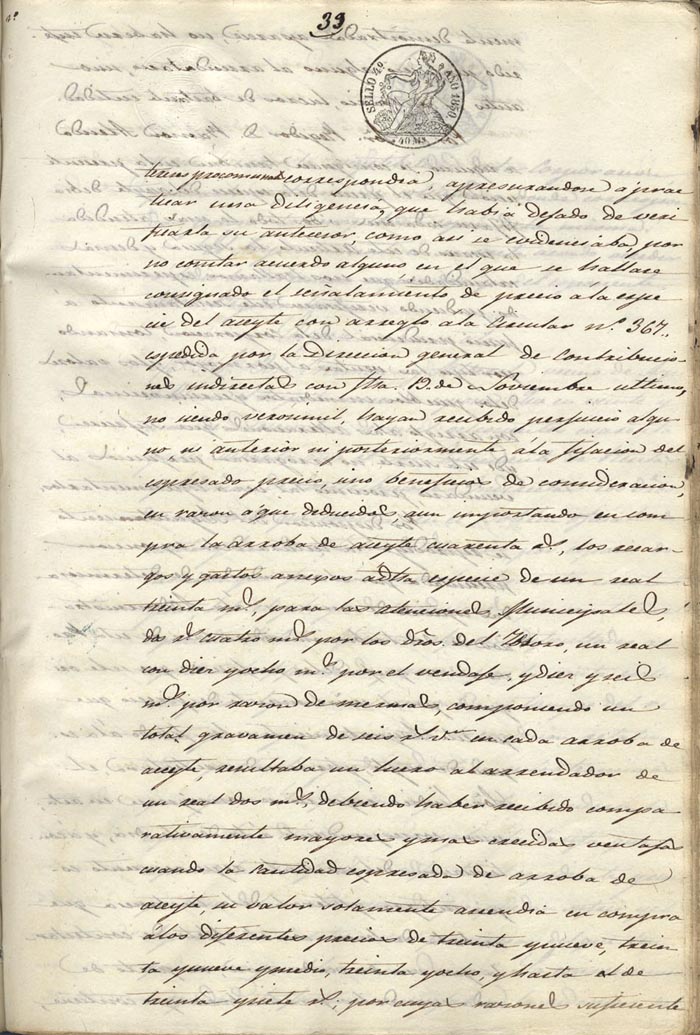 33
SELLO 4º AÑO 1850
40 MS
correspondia, apresurandose a prac
ticar una diligencia, que habia dejado de veri
ficarla su anterior, como asi se evidenciaba, por
no constar acuerdo alguno en el que se hallase
consignado el señalamiento de precio a la espe
cie del aceyte con arreglo a la Circular nº 367.,
espedida por la Direccion general de Contribucio
nes indirectas con fha. 12 de Noviembre ultimo,
no siendo verosimil, hayan recibido perjuicio algu
no ni anterior ni posteriormente, á la fijacion del
espresado precio, sino beneficios de consideracion,
en razon a que deducidos aun importando en com
pra la arroba de aceyte cuarenta rs., los recar
gos y gastos anejos a dha especie de un real
treinta ms. para las atenciones Municipales,
dos rs. cuatro ms. por los dros. del Tesoro, un real
con diez y ocho ms. por el vendaje, y diez y seis
ms. por razon de mermas, componiendo un
total gravamen de seis rs. vn. en cada arroba de
aceyte, resultaba un lucro al arrendador de
un real dos ms., debiendo haber recibido compa
rativamente mayores y mas crecidas ventajas
cuando la cantidad espresada de arroba de
aceyte, su valor solamente ascendia en compra
á los diferentes precios de treinta y nueve, trein
ta y nueve y medio, treinta y ocho, y hasta el de
treinta y siete rs.; por cuyas razones suficiente